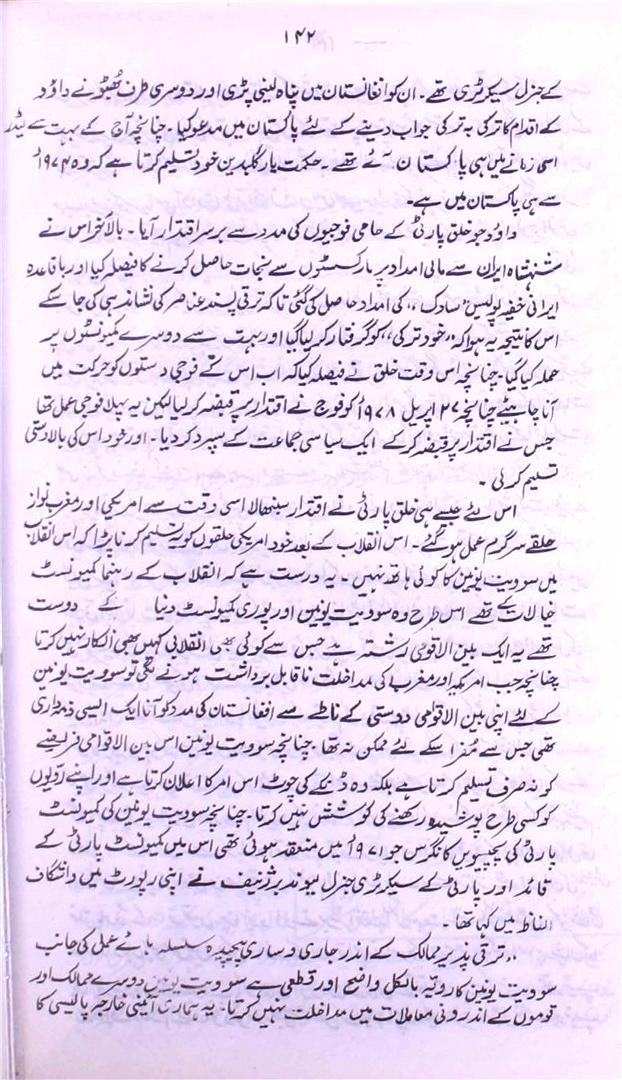 ۱۴۲
کے جنرل سیکرٹری تھے۔ ان کو افغانستان میں پناہ لینی پڑی اور دوسری طرف بُھٹو نے داؤد
کے اقدام کا ترکی بہ ترکی جواب دینے کے لئے پاکستان میں مدعو کیا۔ چنانچہ آج کے بہت سے لیڈر
اسی زمانے میں ہی پاکستان آئے تھے۔ حکمت یار گلبدین خود تسلیم کرتا ہے کہ وہ ۱۹۷۴ء
سے ہی پاکستان میں ہے۔
داؤد جو خلق پارٹی کے حامی فوجیوں کی مدد سے برسر اقتدار آیا۔ بالآخر اس نے
شہنشاہ ایران سے مالی امداد پر مارکسسٹوں سے نجات حاصل کرنے کا فیصلہ کیا اور باقاعدہ
ایرانی خفیہ پولیس "ساوک" کی امداد حاصل کی گئی تاکہ ترقی پسند عناصر کی نشاندہی کی جا سکے
اس کا نتیجہ یہ ہوا کہ "خود ترکی" کو گرفتار کر لیا گیا اور بہت سے دوسرے کمیونسٹوں پر
حملہ کیا گیا۔ چنانچہ اس وقت خلق نے فیصلہ کیا کہ اب اس کے فوجی دستوں کو حرکت میں
آنا چاہیئے چنانچہ ۲۷ اپریل ۱۹۷۸ء کو فوج نے اقتدار پر قبضہ کر لیا لیکن یہ پہلا فوجی عمل تھا
جس نے اقتدار پر قبضہ کر کے ایک سیاسی جماعت کے سپرد کر دیا۔ اور خود اس کی بالادستی
تسلیم کر لی۔
اس لئے جیسے ہی خلق پارٹی نے اقتدار سنبھالا اسی وقت سے امریکی اور مغرب نواز
حلقے سرگرم عمل ہو گئے۔ اس انقلاب کے بعد خود امریکی حلقوں کو یہ تسلیم کرنا پڑا کہ اس انقلاب
میں سوویت یونین کا کوئی ہاتھ نہیں۔ یہ درست ہے کہ انقلاب کے رہنما کمیونسٹ
خیالات کے تھے اس طرح وہ سوویت یونین اور پوری کمیونسٹ دنیا کے دوست
تھے یہ ایک بین الاقوامی رشتہ ہے جس سے کوئی بھی انقلابی کہیں بھی انکار نہیں کرتا
چنانچہ جب امریکہ اور مغرب کی مداخلت ناقابل برداشت ہونے لگی تو سوویت یونین
کے لئے اپنی بین الاقوامی دوستی کے ناطے سے افغانستان کی مدد کو آنا ایک ایسی ذمہ داری
تھی جس سے مُفر اسکے لئے ممکن نہ تھا۔ چنانچہ سوویت یونین اس بین الاقوامی فریضے
کو نہ صرف تسلیم کرتا ہے بلکہ وہ ڈنکے کی چوٹ اس امر کا اعلان کرتا ہے اور اپنے رویوں
کو کسی طرح پوشیدہ رکھنے کی کوشش نہیں کرتا۔ چنانچہ سوویت یونین کی کمیونسٹ
پارٹی کی پچیسویں کانگرس جو ۱۹۷۱ء میں منعقد ہوئی تھی اس میں کمیونسٹ پارٹی کے
قائد اور پارٹی کے سیکرٹری جنرل لیونڈ برژنیف نے اپنی رپورٹ میں واشگاف
الفاظ میں کہا تھا۔
"ترقی پذیر ممالک کے اندر جاری و ساری پیچیدہ سلسلہ ہائے عمل کی جانب
سوویت یونین کا رویہ بالکل واضح اور قطعی ہے سوویت یونین دوسرے ممالک اور
قوموں کے اندرونی معاملات میں مداخلت نہیں کرتا۔ یہ ہماری آئینی خارجہ پالیسی کا